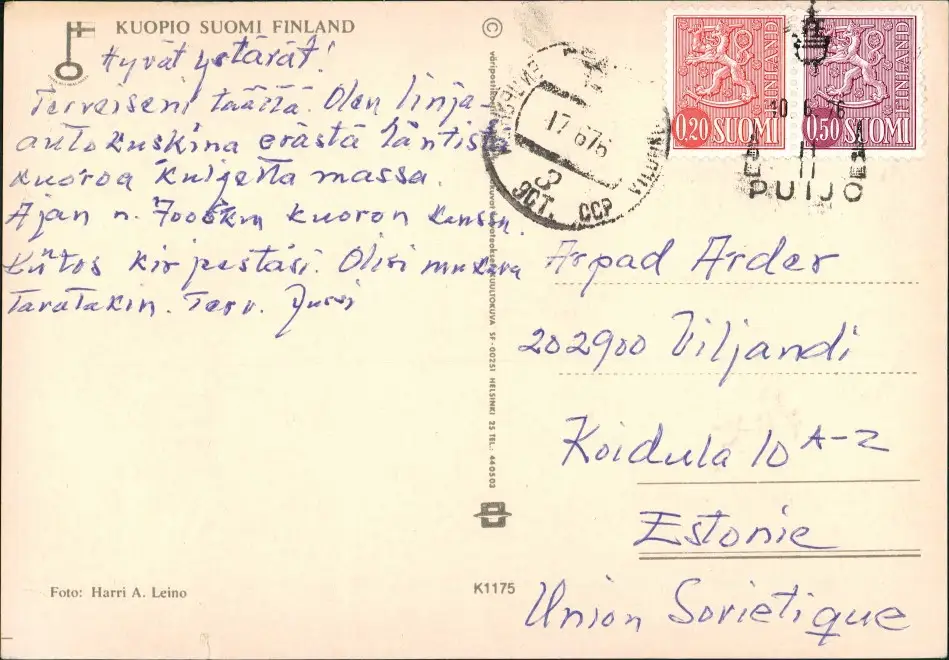 KUOPIO SUOMI FINLAND
Hyvät ystävät!
Terveiseni täältä. Olen linja-
autokuskina erästä läntistä
kuoroa kuljettamassa.
Ajan n. 7000km kuoron kanssa.
Kiitos kirjestäsi. Olisi mukava
tavatakin. Terv. Jussi
Foto: Harri A. Leino
©
KUULTOKUVA SF-00251 HELSINKI 25 TEL. 440503
K1175
17 676
3
ЭСТ. ССР
0,20 SUOMI
FINLAND
0,50 SUOMI
FINLAND
10. 6. 76
PUIJO
Arpad Arder
202900 Viljandi
Koidula 10 A-2
Estonie
Union Sovietique